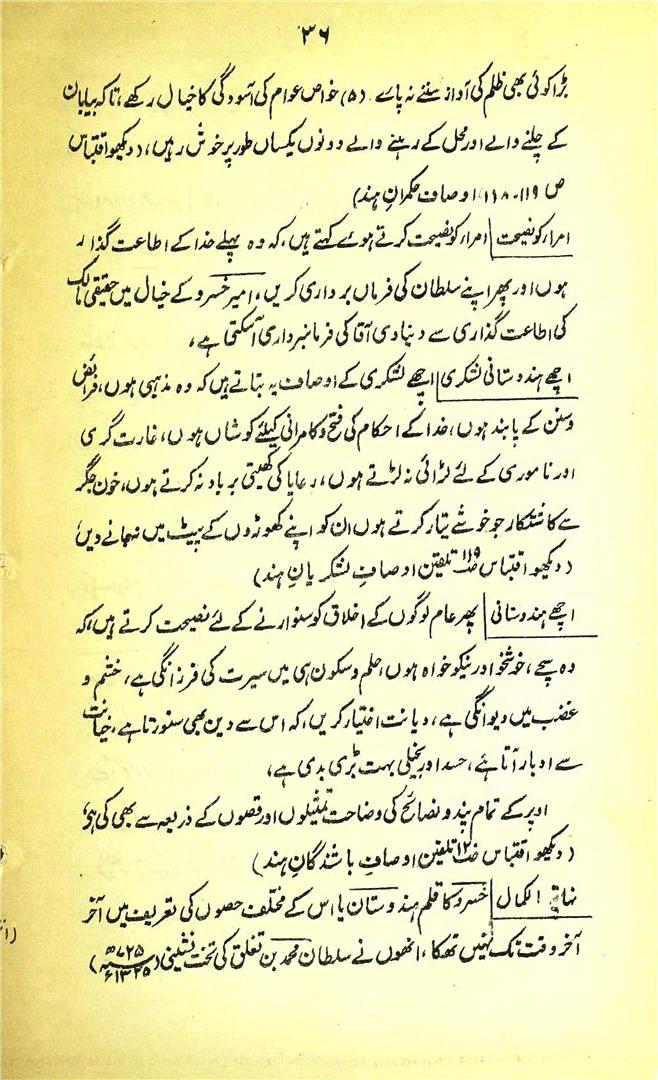 ۳۶
بڑا کوئی بھی ظلم کی آواز سننے نہ پائے ۔ (۵) خواص عوام کی آسودگی کا خیال رکھے، تاکہ بیابان
کے چلنے والے اور محل کے رہنے والے دونوں یکساں طور پر خوش رہیں، (دیکھو اقتباس
ص ۱۱۹۔۱۱۸، اوصاف حکمرانِ ہند)
امراء کو نصیحت امراء کو نصیحت کرتے ہوئے کہتے ہیں، کہ وہ پہلے خدا کے اطاعت گذار
ہوں اور پھر اپنے سلطان کی فرماں برداری کریں، امیر خسرو کے خیال میں حقیقی مالک
کی اطاعت گذاری سے دنیاوی آقا کی فرمانبرداری آسکتی ہے،
اچھے ہندوستانی لشکری اچھے لشکری کے اوصاف یہ بتاتے ہیں کہ وہ مذہبی ہوں، فرائض
وسنن کے پابند ہوں، خدا کے احکام کی فتح و کامرانی کیلئے کوشاں ہوں، غارت گری
اور ناموری کے لئے لڑائی نہ لڑتے ہوں، رعایا کی کھیتی برباد نہ کرتے ہوں، خون جگر
سے کاشتکار جو خوشے تیار کرتے ہوں ان کو اپنے گھوڑوں کے پیٹ میں نہ جانے دیں،
(دیکھو اقتباس ص۱۱۹ تلقین اوصافِ لشکریانِ ہند)
اچھے ہندوستانی پھر عام لوگوں کے اخلاق کو سنوارنے کے لئے نصیحت کرتے ہیں، کہ
وہ سچے، خوشخو اور نیکو خواہ ہوں، حلم و سکون ہی میں سیرت کی فرزانگی ہے، خشم و
غضب میں دیوانگی ہے، دیانت اختیار کریں، کہ اس سے دین بھی سنورتا ہے، خیانت
سے ادبار آتا ہے، حسد اور بخیلی بہت بڑی بدی ہے،
اوپر کے تمام پند و نصائح کی وضاحت تمثیلوں اور قصوں کے ذریعہ سے بھی کی ہی،
(دیکھو اقتباس ص۱۲۰ تلقین اوصافِ باشندگانِ ہند)
نہایۃ الکمال خسرو کا قلم ہندوستان یا اس کے مختلف حصوں کی تعریف میں آخر
آخر وقت تک نہیں تھکا، انھوں نے سلطان محمد بن تغلق کی تخت نشینی (۷۲۵ھ ۱۳۲۵ء)